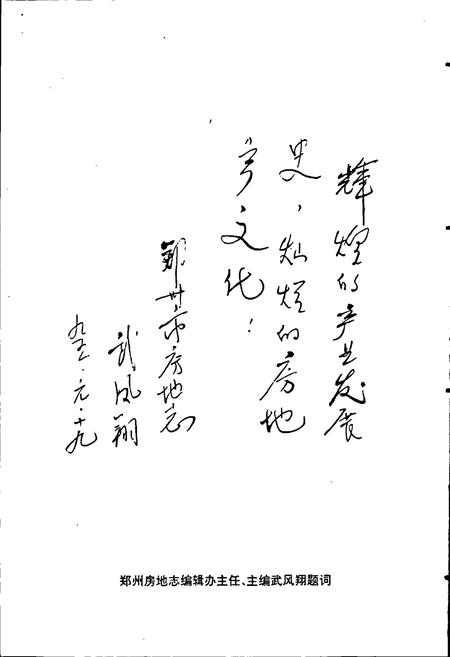 辉煌的产业发展
史，灿烂的房地
产文化！
郑州市房地志
武凤翔
九五.元.十九
郑州房地志编辑办主任、主编武凤翔题词